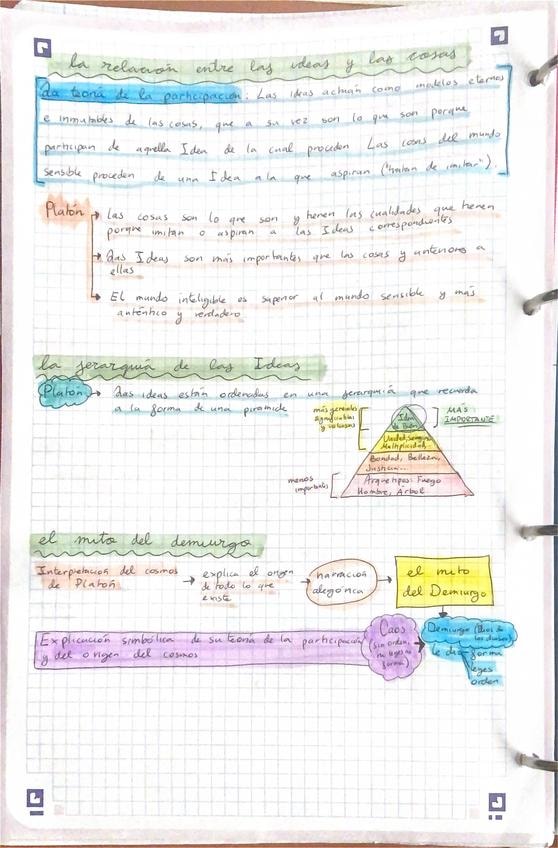 la relación entre las ideas y las cosas
La teoría de la participación: Las ideas actúan como modelos eternos
e inmutables de las cosas, que a su vez son lo que son porque
participan de aquella Idea de la cual proceden. Las cosas del mundo
sensible proceden de una Idea a la que aspiran ("tratan de imitar").
Platón → las cosas son lo que son y tienen las cualidades que tienen
porque imitan o aspiran a las Ideas correspondientes
→ Las Ideas son más importantes que las cosas y anteriores a
ellas
→ El mundo inteligible es superior al mundo sensible y más
auténtico y verdadero
la jerarquía de las Ideas
Platón → Las ideas están ordenadas en una jerarquía que recuerda
a la forma de una pirámide
más generales
significables
y valiosas
Idea
de Bien
MÁS
IMPORTANTE
Unidad,
Multiplicidad...
Bondad, Belleza,
Justicia...
menos
importantes
Arquetipos: Fuego
Hombre, Árbol
el mito del demiurgo
Interpretación del cosmos
de Platón
→ explica el origen
de todo lo que
existe
→ narración
alegórica
→ el mito
del Demiurgo
Explicación simbólica de su teoría de la participación
y del origen del cosmos
Caos
(sin orden,
ni leyes ni
forma)
→ Demiurgo (dios de
los dioses)
le dio forma
leyes
orden